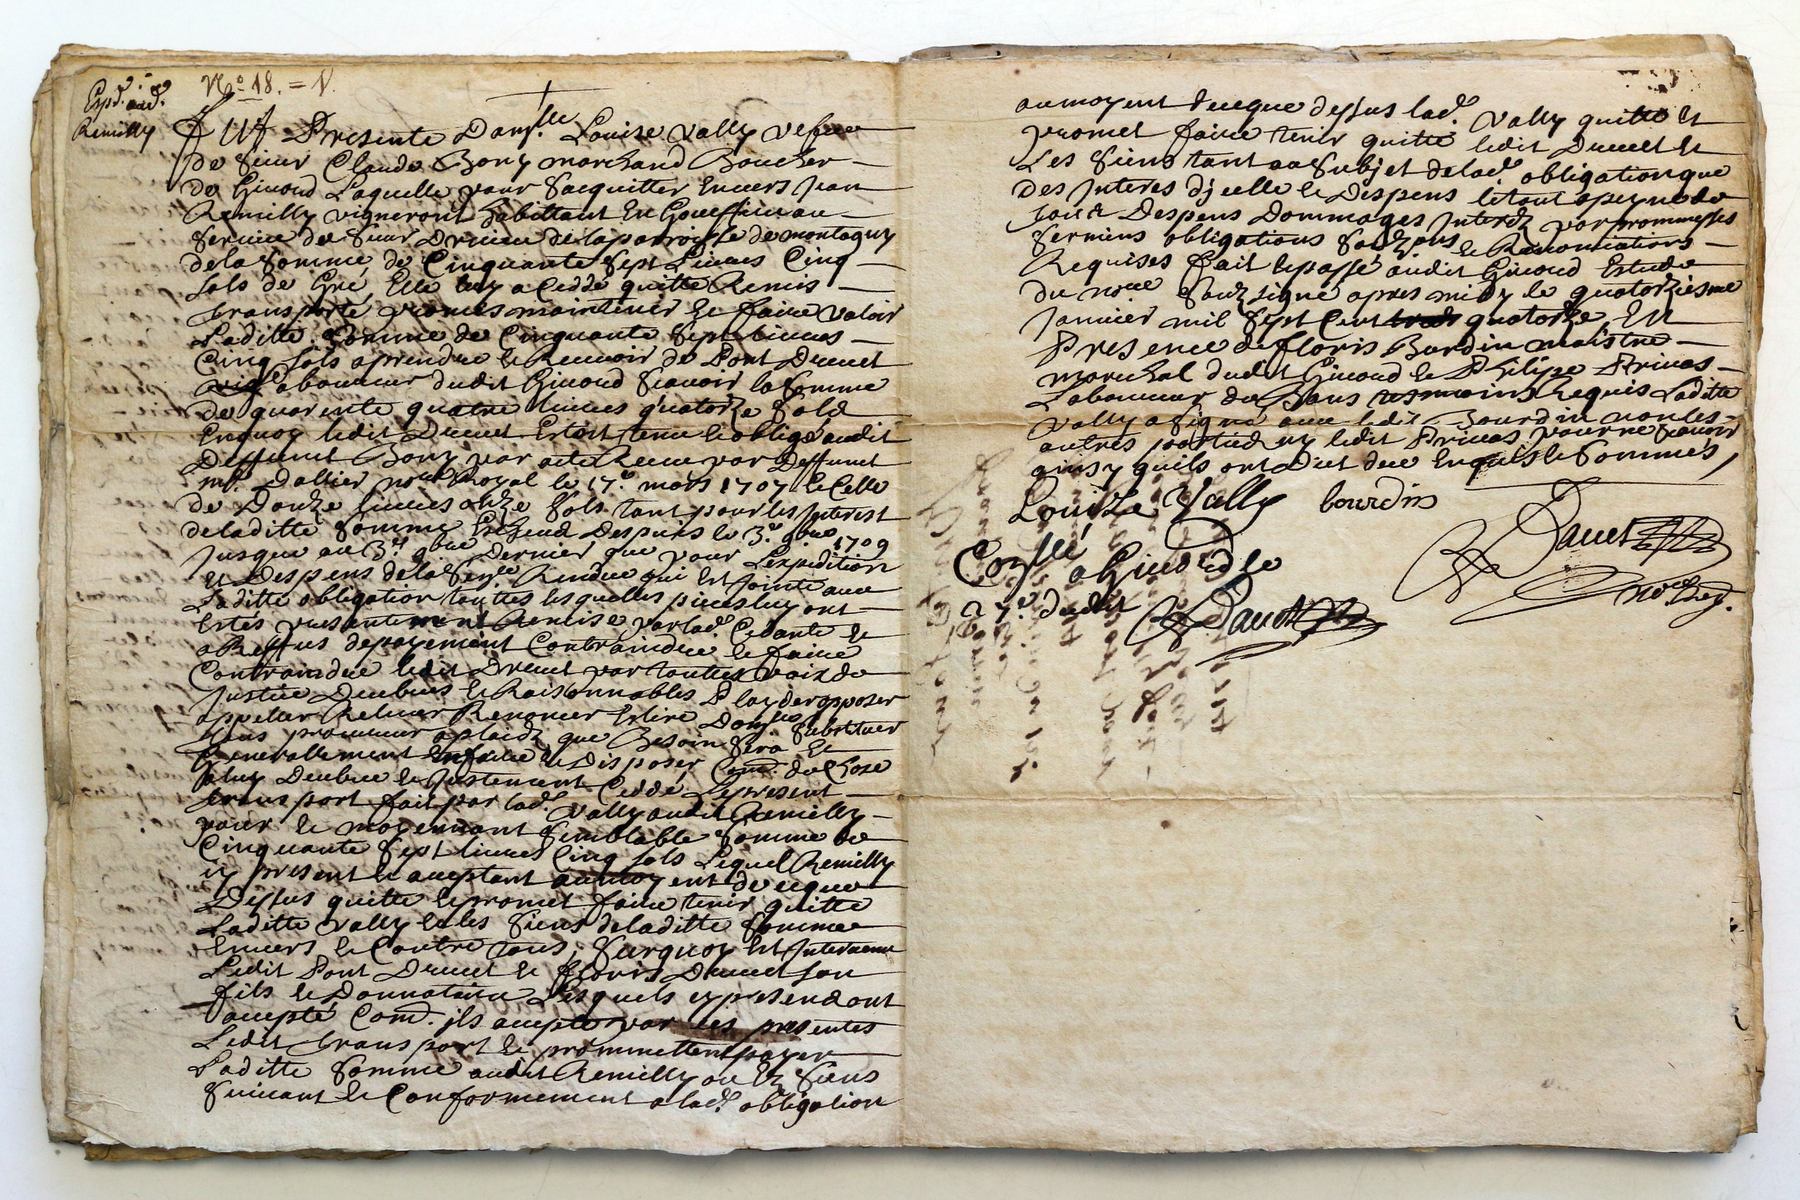 Expd. aud.
Remilly
No. 18. = V.
Fut Presente Damslle Louise Vally vefve
de sieur Claude Bony marchand Boucher
de Givord Laquelle pour sacquitter Envers Jean
Remilly vigneront habittant En Goueffieu au
service de sieur Drivieu de la parroisse de montagny
de la somme de Cinquante sept Livres Cinq
sols de Gré, Elle luy a ceddé quitte Remis
transporte promes maintenir et faire valoir
Laditte somme de Cinquante sept livres
Cinq sols a prendre et Recevoir de Pont Drevet
laboureur dudit Givord scavoir la somme
de quarente quatre livres quatorze sold
Enquoy ledit Drevet Estoit tenu et obligé audit
deffunct Bony par acte Receu par deffunct
me. Dallier nore Royal le 17e. mars 1707 et Celle
de Douze livres onze sols tant pour les Interest
de laditte somme Despuis le 3e. 9bre 1709
Jusque au 3e. 9bre Dernier que pour Lexpedition
et Despens de la Rendue qui Est Jointe avec
Laditte obligation touttes lesquelles pieces luy ont
Estés presentement Remise par lade. Cedante et
a Reffus de payement Contraindre et faire
Contraindre ledit Drevet par touttes voix de
Justice Deubues et Raisonnables Playder opposer
appeller Relever Renoncer Eslire Domlles substituer
procureur a plaidz que Besoin sera et
Generallement En faire et Disposer Comd. de Chose
a luy Deubue et Justement Ceddé, Le present
transport fait par lade. Vally audit Remilly
pour et moyennant semblable somme de
Cinquante sept livres Cinq sols Lequel Remilly
cy present et aceptant au moyent de ceque
Dessus quitte et promet faire tenir quitte
Laditte Vally et les siens de laditte somme
Envers et Contre tous, surquoy Est Intervenu
Ledit Pont Drevet et floris Drevet son
fils et Donnataire Lesquels cy presend ont
accepté Comd. ils acceptent par les presentes
Ledit transport et promettent payer
Laditte somme audit Remilly ou Ez siens
suivant et Conformement a lade. obligation
au moyent de ceque dessus lade. Vally quitte et
promet faire tenir quitte ledit Drevet et
Les siens tant au subjet de lade. obligation que
des Interes d'jcelle et Despens le tout a peyne de
tous Despens Dommages Interez par prommesses
sermens obligations et Renontiations
Requises fait et passé audit Givord Estude
du nore soubzsigné apres midy le quatorziesme
Janvier mil sept Cent quatorze, En
Presence de floris Burdin maistre
marechal dudit Givord et Philipe Privas
Laboureur de Bans tesmoins Requis Laditte
Vally a signé avec ledit Bourdin non les
autres parties ny ledit Privas pour ne scavoir
ainsy quils ont Dict de ce Enquis et sommés,
Louize Vally bourdin
Dauet
nore Roy.
Conslé a Givord le
27e. dudit Dauet